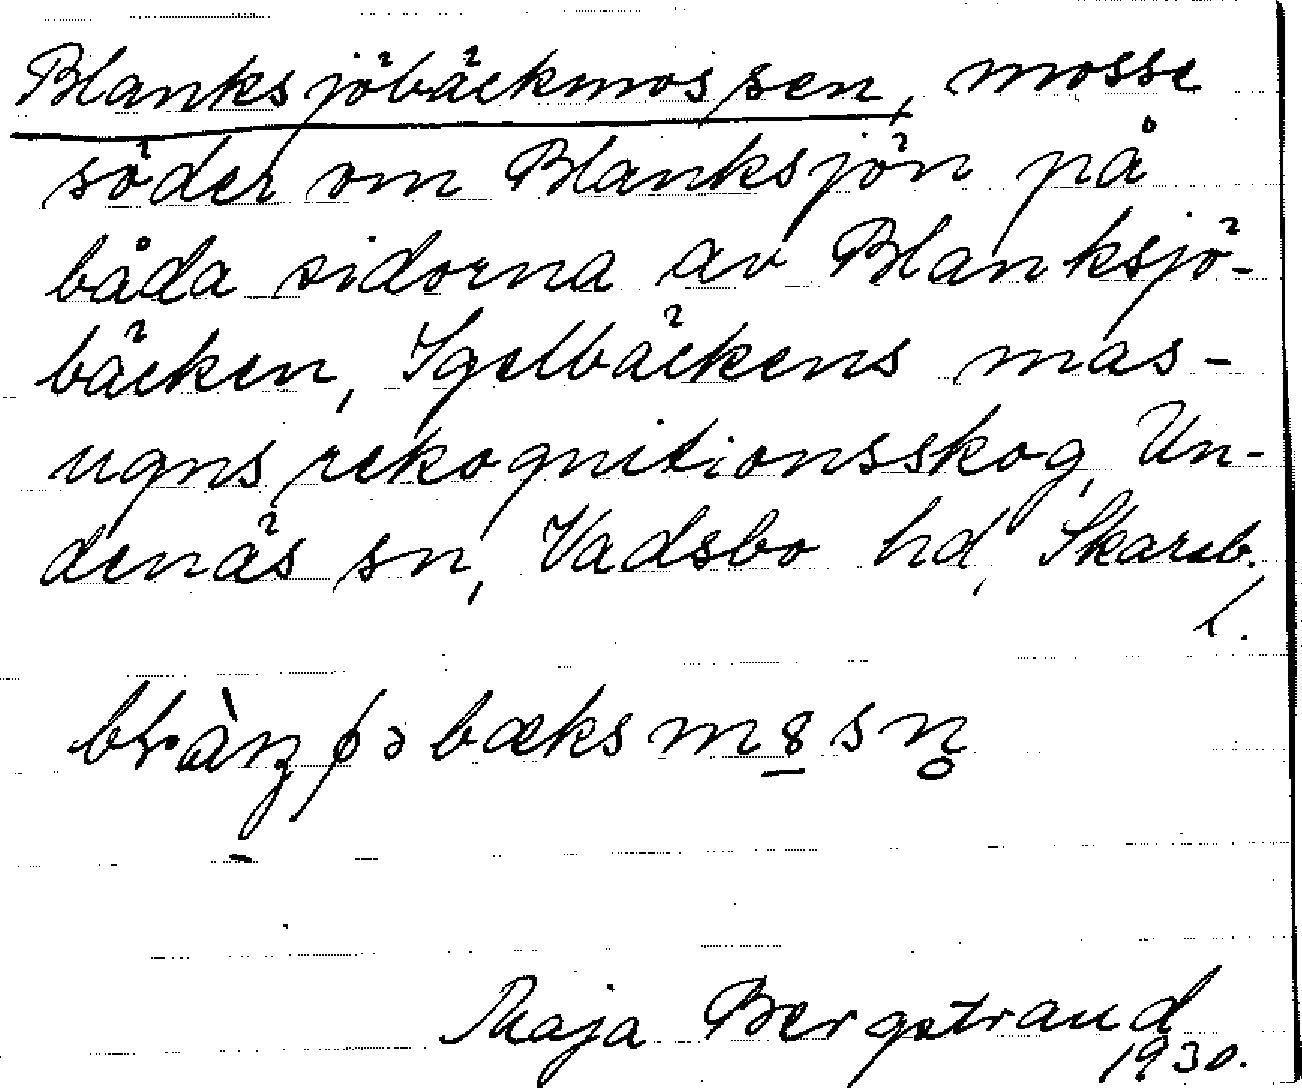 Blanksjöbäckmossen, mosse
söder om Blanksjön på
båda sidorna av Blanksjö-
bäcken, Igelbäckens mas-
ugns rekognitionsskog, Un-
denäs sn, Vadsbo hd, Skarab.
l.
Maja Bergstrand
1930.